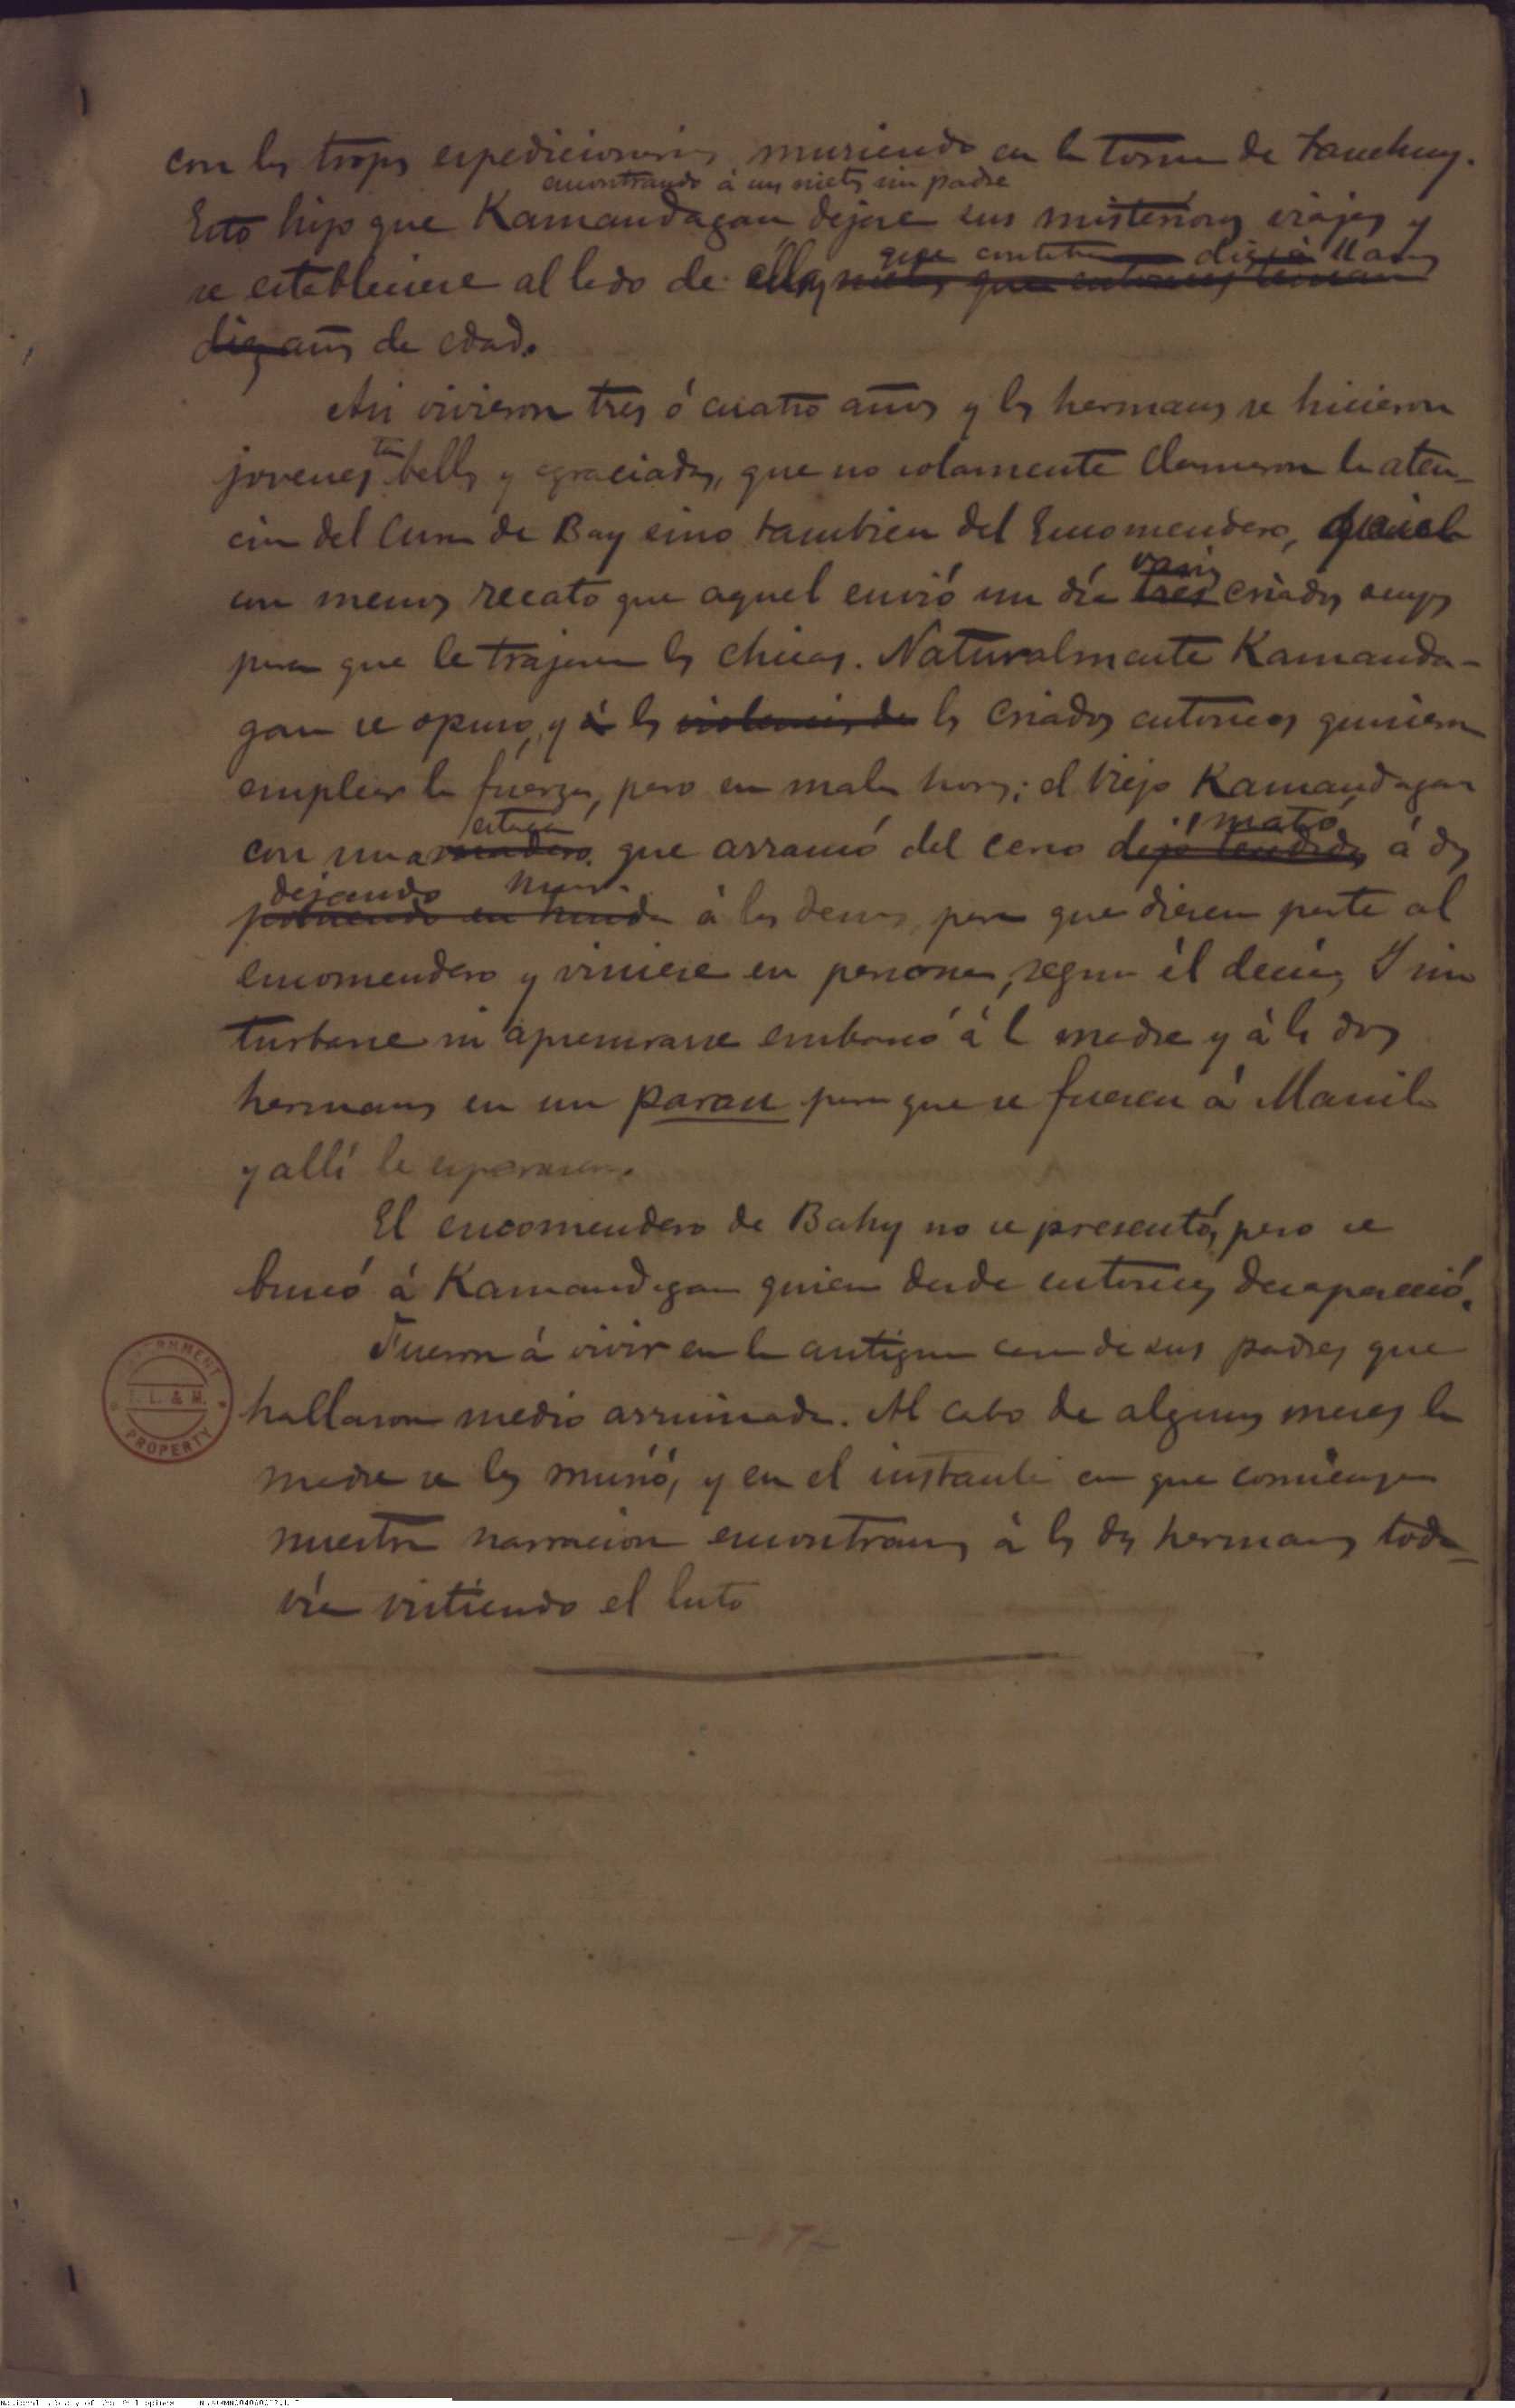 con las tropas expedicionarias, muriendo en la toma de Tanchuy.
encontrando á sus nietas sin padre
Esto hizo que Kamandagan dejase sus misteriosos viajes y
que diez á
se estableciese al lado de ellas, nietas que entonces tenian
diez años de edad.
Asi vivieron tres ó cuatro años y las hermanas se hicieron
tan
jovenes bellas y agraciadas, que no solamente llamaron la aten-
cion del Cura de Bay sino tambien del Encomendero,
varios
con menos recato que aquel envió un dia tres criados suyos
para que le trajesen las chicas. Naturalmente Kamanda-
gan se opuso, y á las violencias de los criados entonces quisieron
emplear la fuerza, pero en mala hora; el viejo Kamandagan
estaca mató
con una madero que arrancó del cerco dejó tendidos á dos
dejando huir
poniendo en huida á los demas, para que diesen parte al
encomendero y viniese en persona, segun él decia. Y sin
turbarse ni apresurarse embarcó á la madre y á las dos
hermanas en un parau para que se fuesen á Manila
y allí le esperasen.
El encomendero de Bahy no se presentó, pero se
buscó á Kamandagan quien desde entonces desapareció.
Fueron á vivir en la antigua casa de sus padres que
hallaron medio arruinada. Al cabo de algunos meses la
madre se les murió, y en el instante en que comienza
nuestra narracion encontramos á las dos hermanas toda-
via vistiendo el luto
GOVERNMENT
P. L. & M.
PROPERTY
-172